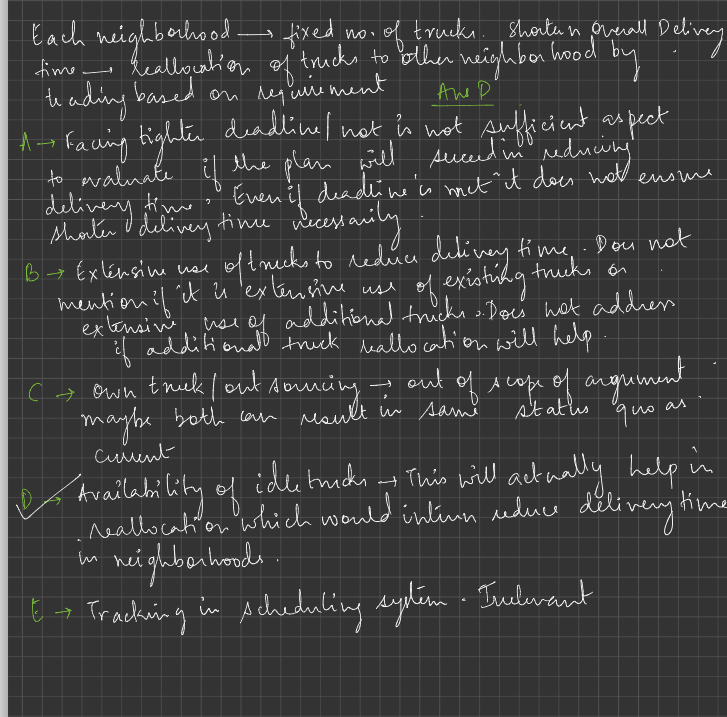 Each neighborhood → fixed no. of trucks. Shorten overall Delivery
time → Reallocation of trucks to other neighborhood by
trading based on requirement
Ans D
A → Facing tighter deadline/not is not sufficient aspect
to evaluate if the plan will succeed in reducing
delivery time. Even if deadline is met it does not ensure
shorter delivery time necessarily.
B → Extensive use of trucks to reduce delivery time. Does not
mention if it is extensive use of existing trucks or
extensive use of additional trucks. Does not address
if additional truck reallocation will help.
C → own truck/outsourcing → out of scope of argument
maybe both can result in same status quo as
current
D → Availability of idle trucks → This will actually help in
reallocation which would inturn reduce delivery time
in neighborhoods.
E → Tracking in scheduling system. Irrelevant